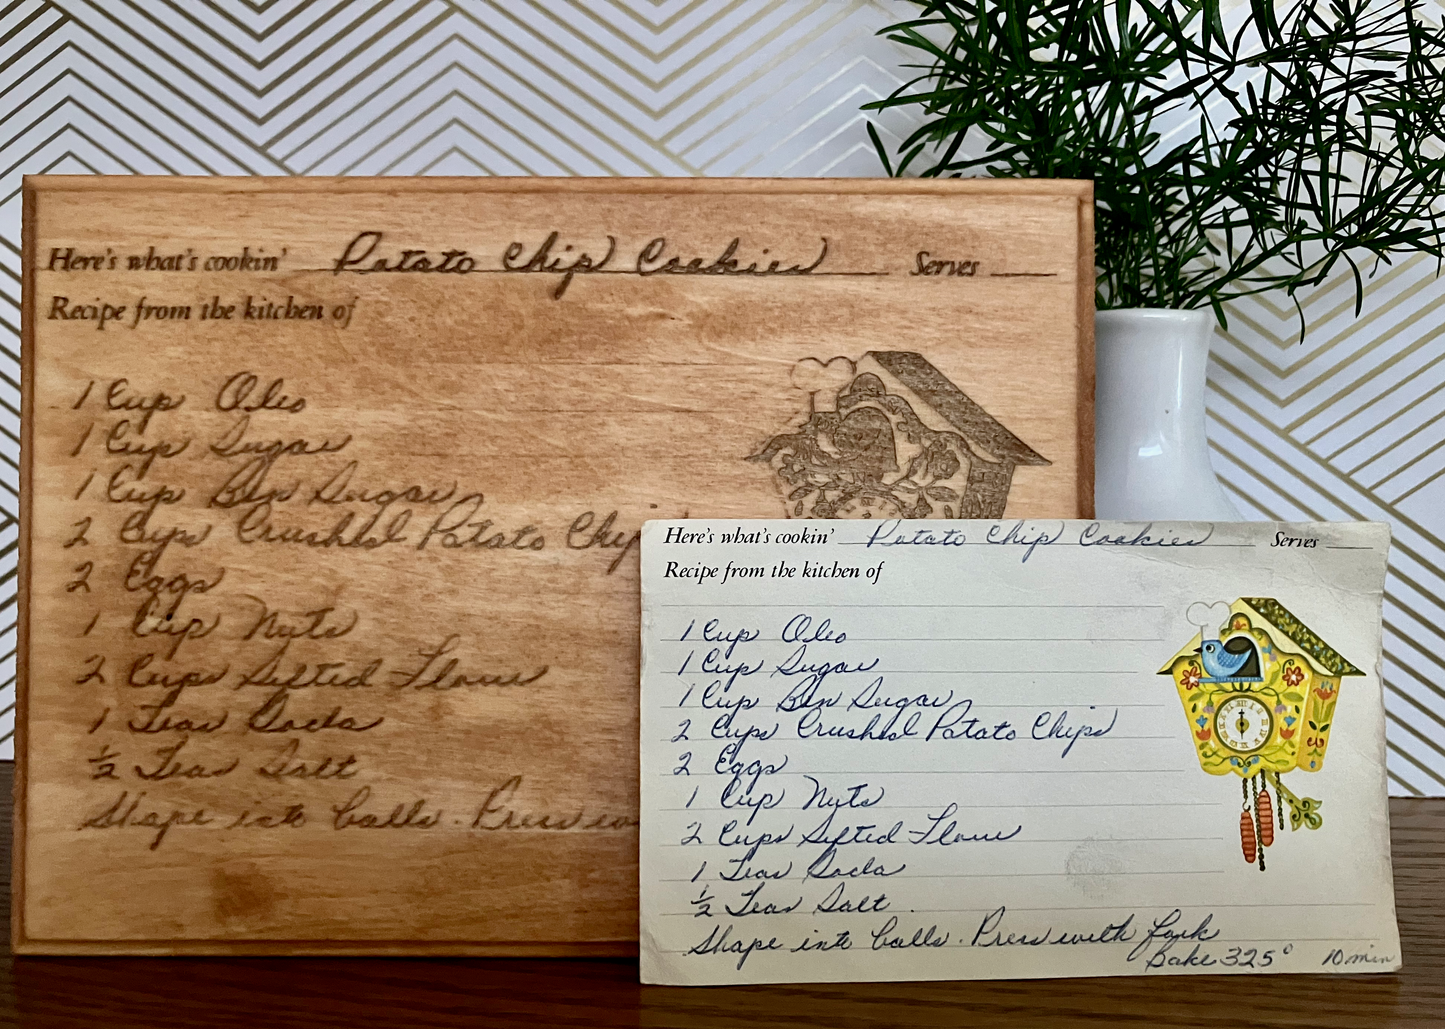 Here's what's cookin' Potato Chip Cookies Serves
Recipe from the kitchen of
1 Cup Oleo
1 Cup Sugar
1 Cup Brn Sugar
2 Cups Crushed Potato Chip
2 Eggs
1 Cup Nuts
2 Cups Sifted Flour
1 Teas Soda
½ Teas Salt
Shape into balls. Press w
Here's what's cookin' Potato Chip Cookies Serves
Recipe from the kitchen of
1 Cup Oleo
1 Cup Sugar
1 Cup Brn Sugar
2 Cups Crushed Potato Chips
2 Eggs
1 Cup Nuts
2 Cups Sifted Flour
1 Teas Soda
½ Teas Salt
Shape into balls. Press with fork
Bake 325° 10 min